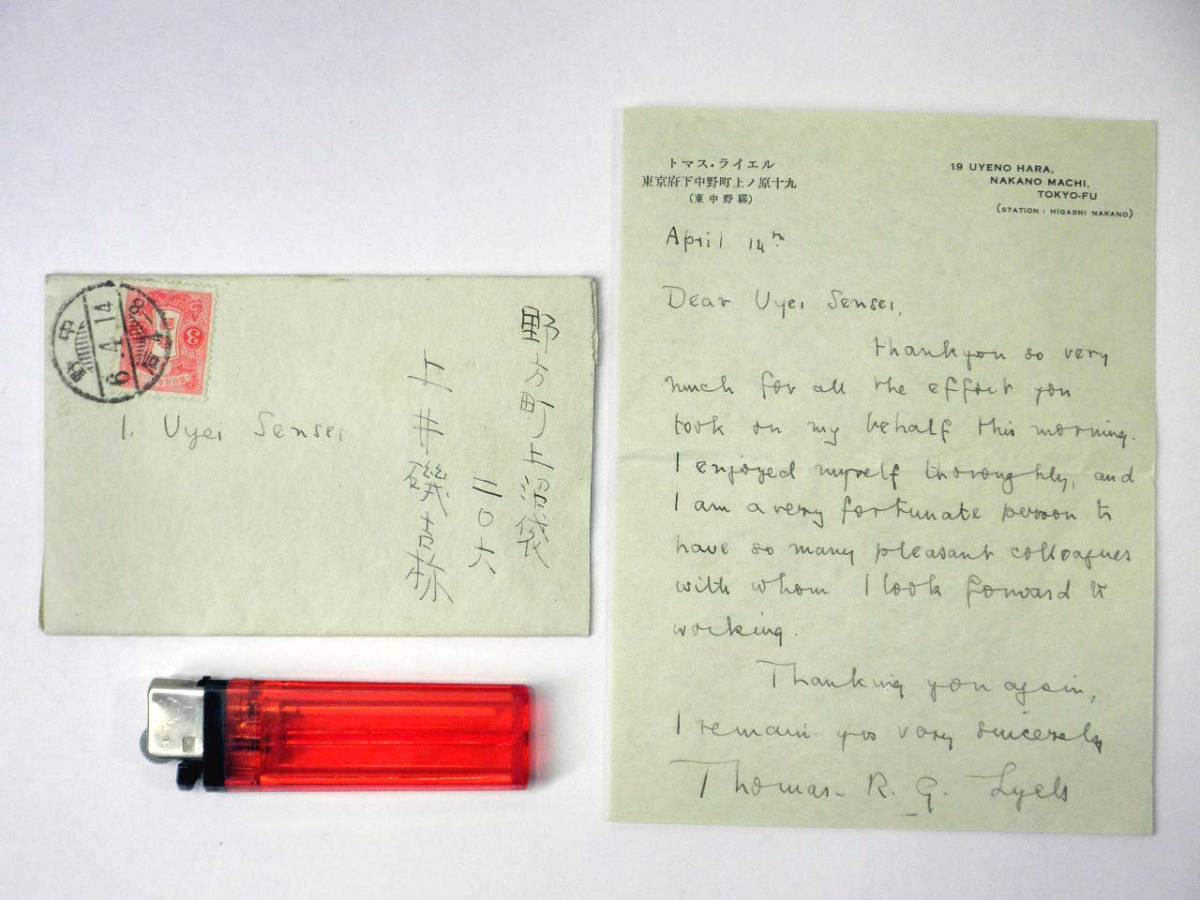 中野
6.4.14
3
1. Uyei Sensei
野方町上沼袋
二〇六
上井磯吉様
トマス・ライエル
東京府下中野町上ノ原十九
(東中野驛)
19 UYENO HARA,
NAKANO MACHI,
TOKYO-FU
(STATION: HIGASHI NAKANO)
April 14th
Dear Uyei Sensei,
Thankyou so very
much for all the effort you
took on my behalf this morning.
I enjoyed myself thoroughly, and
I am a very fortunate person to
have so many pleasant colleagues
with whom I look forward to
working.
Thanking you again,
I remain yrs very sincerely
Thomas R. G. Lyell